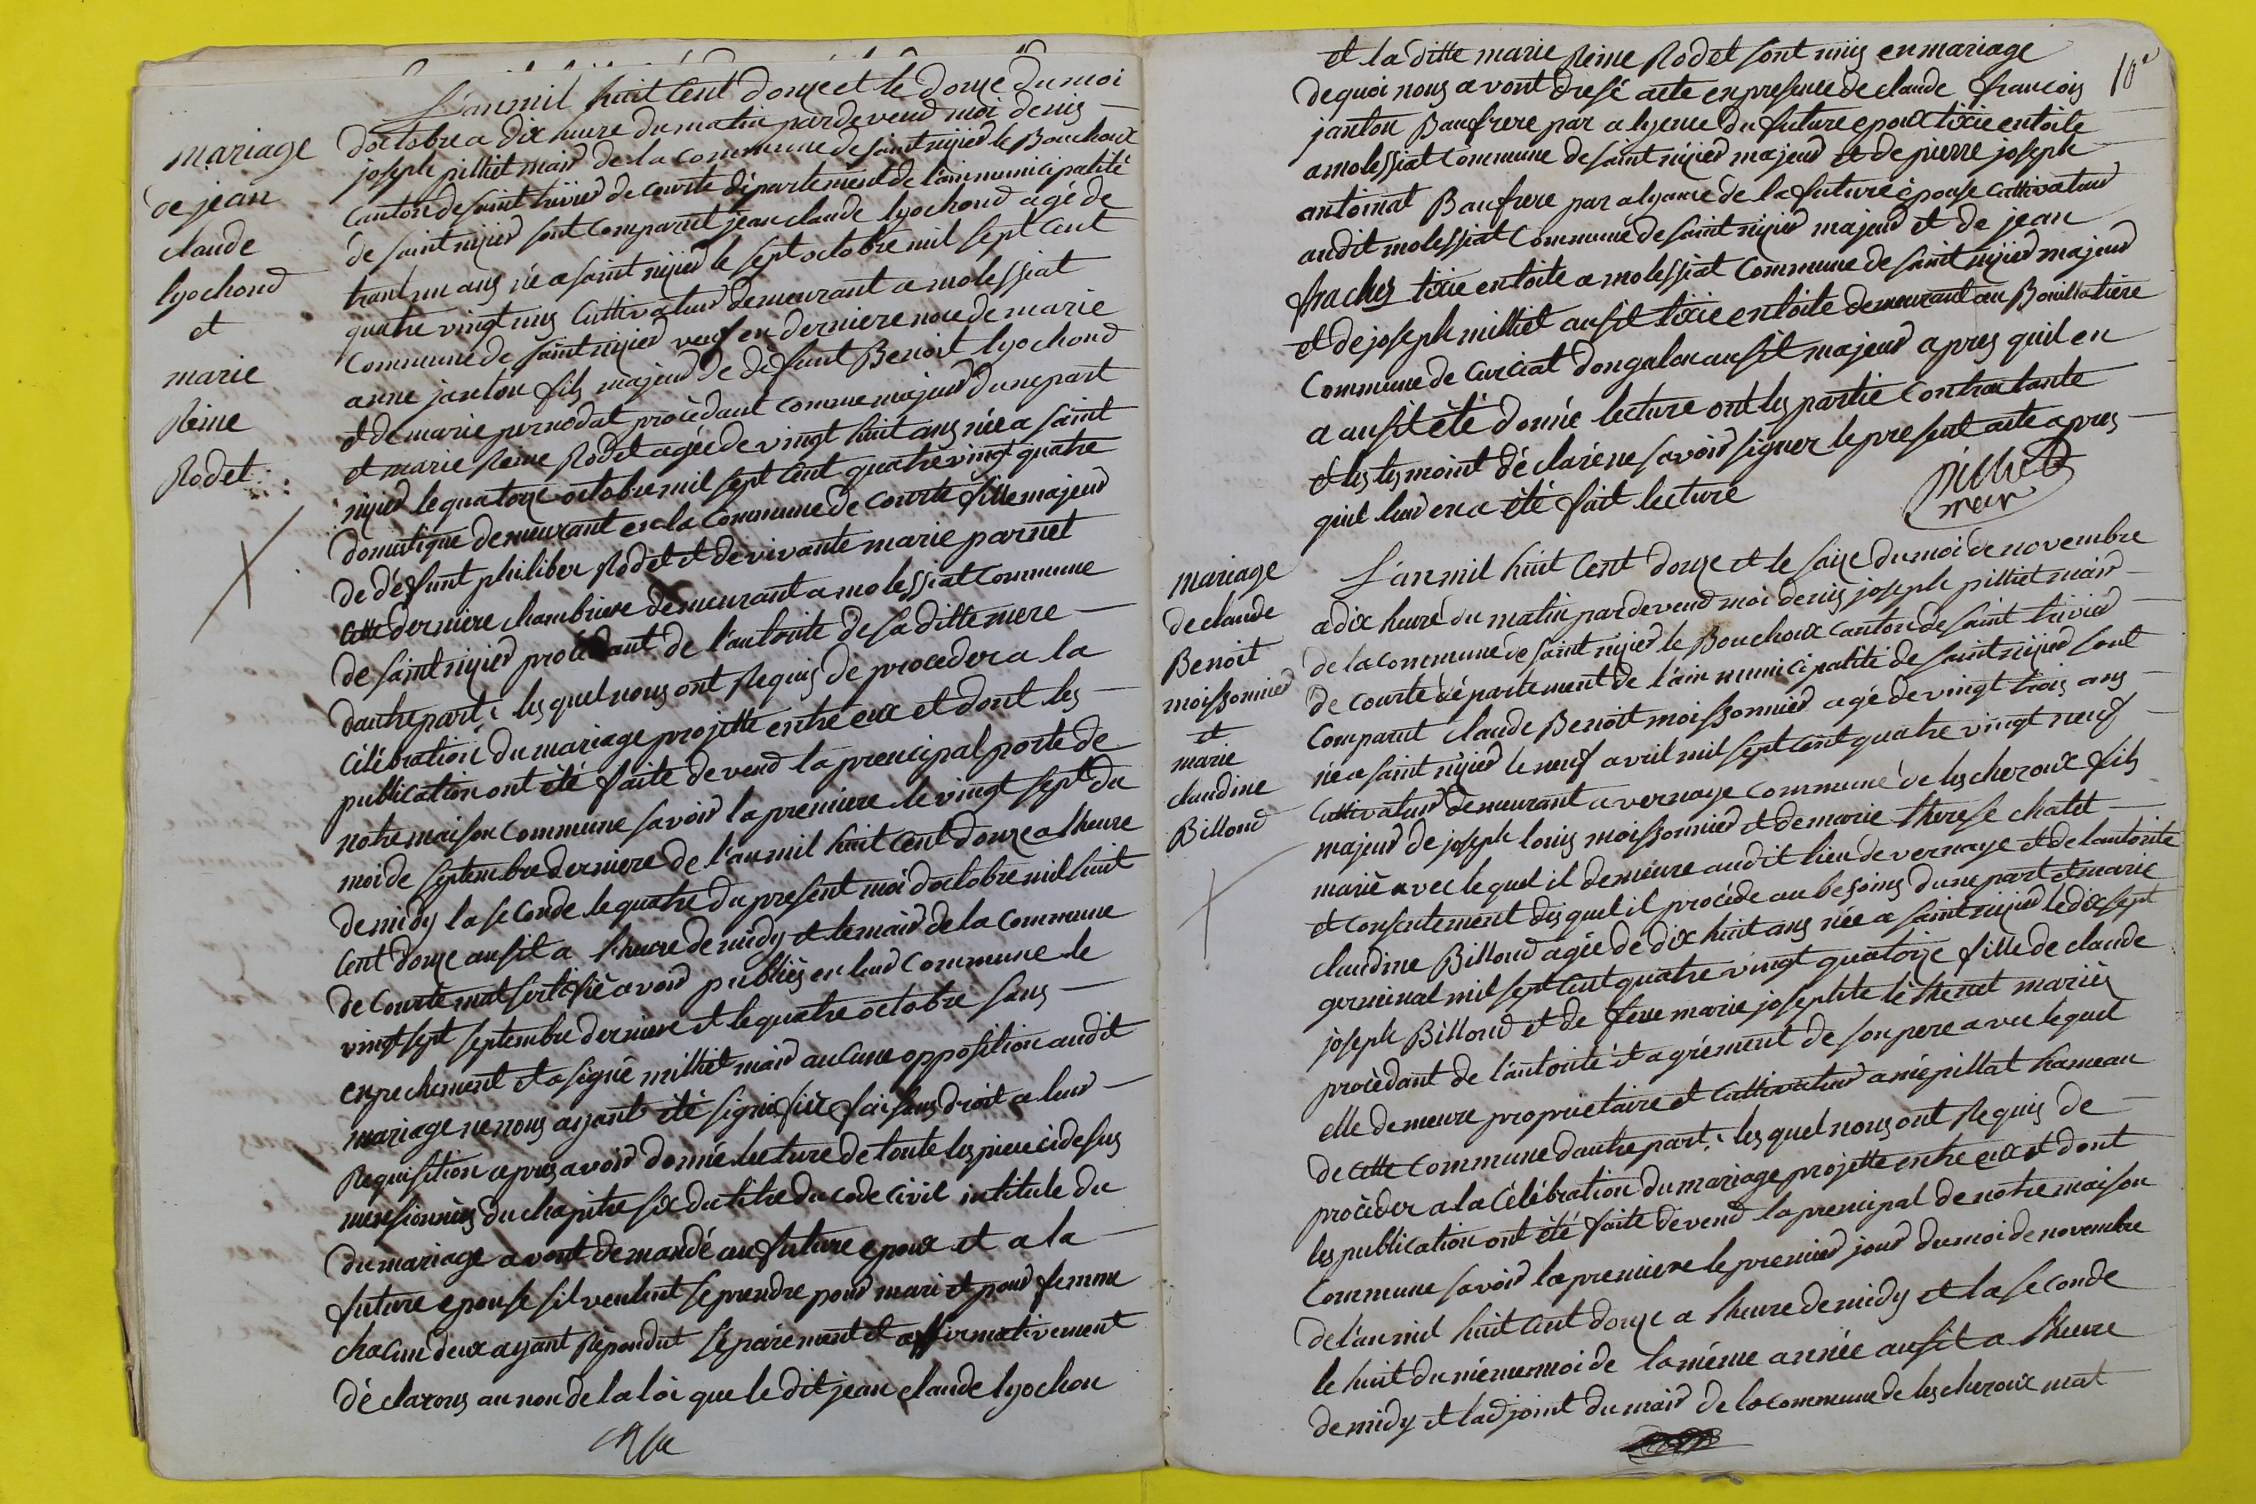 mariage
de jean
claude
lyochond
et
marie
Reine
Rodet
L'an mil huit Cent douze et le douze du moi
doctobre a dix heure du matin pardevend moi denis
joseph pilliet maird de la commune de saint nizierd le Bouchoux
Canton de saint trivierd de courte département de l'ain municipalité
de saint nizierd sont comparut jean claude lyochond agé de
trant un ans né a saint nizierd le sept octobre mil sept Cent
quatre vingt uns Cultivateurd demeurant a molessiat
Commune de saint nizierd veuf en derniere noce de marie
anne janton fils majeurd de défunt Benoit lyochond
et de marie pernodat procédant comme majeurd dune part
et marie Reine Rodet agée de vingt huit ans née a saint
nizierd le quatorze octobre mil sept Cent quatre vingt quatre
domestique demeurant en la Commune de Courte fille majeurd
de défunt philiber Rodet et de vivante marie parnet
Cette derniere chambriere demeurant a molessiat commune
de saint nizierd procédant de l'autorite de sa ditte mere
dautre part ; les quel nous ont Requis de proceder a la
Célébration du mariage projette entre eux et dont les
publication ont été faite devend la prencipal porte de
notre maison commune savoird la premiere le vingt sept du
moi de septembre derniere de l'an mil huit Cent douze a lheure
de midy la seconde le quatre du present moi doctobre mil huit
Cent douze ausit a lheure de midy et le maird de la commune
de Courte mat sertifié avoird publiés en leurd Commune le
vingt sept septembre derniere et le quatre octobre sans
enpechement et a signé milliet maird aucune opposition audit
mariage ne nous ayant été signifiée faisans droit a leurd
Requisition apres avoird donné lecture de toute les piece cidesus
mensionnées du chapitre six du titre du code Civil intitule du
du mariage avont demandé au future epoux et a la
future epouse sil veulent se prendre pourd mari et pourd femme
chacun deux ayant Répondut séparément et affirmativement
déclarons au non de la loi que le dit jean claude lyochon
10e
et la ditte marie Reine Rodet sont unis en mariage
dequoi nous avont dresé acte en presence de claude francois
janton Baufrere par alyence du future epoux tixie en toile
a molessiat Commune de saint nizierd majeurd et de pierre joseph
antoinat Baufrere par alyance de la future épouse Cultivateurd
audit molessiat Commune de saint nizierd majeurd et de jean
frachez tixie en toile a molessiat Commune de saint nizierd majeurd
et de joseph milliet ausit tixie en toile demeurant au Bouillatiere
Commune de Curciat dongalon ausit majeurd apres quil en
a ausit été donnée lecture ont les partie Contractante
et les tesmoint déclaré ne savoird signer le present acte apres
quil leurd en a été fait lecture
pilliet
mer
mariage
de claude
Benoit
moissonnierd
et
marie
claudine
Billoud
L'an mil huit Cent douze et le saize du moi de novembre
a dix heure du matin pardevend moi denis joseph pilliet maird
de la commune de saint nizierd le Bouchoux canton de saint trivierd
de courte département de l'ain municipalité de saint nizierd sont
Comparut claude Benoit moissonnierd agé de vingt trois ans
né a saint nizierd le neuf avril mil sept cent quatre vingt neuf
Cultivateurd demeurant a vernaye commune de lescheroux fils
majeurd de joseph louis moissonnierd et de marie therese chalet
mariè avec le quel il demeure audit lieu de vernaye et de lautorite
et consentement desquel il procéde au besoins dune part et marie
claudine Billoud agée de dix huit ans née a saint nizierd le dix sept
germinal mil sept Cent quatre vingt quatorze fille de claude
joseph Billoud et de feue marie josephte lethenet mariés
procèdant de l'autorité et agrément de son pere avec lequel
elle demeure proprietaire et Cultivateurd a mépillat hameau
de cette commune dautre part ; les quel nous ont Requis de
procèder a la Célébration du mariage projette entre eux et dont
les publication ont été faite devend la prencipal de notre maison
Commune savoird la premiere le premierd jourd du moi de novembre
de l'an mil huit Cent douze a lheure de midy et la seconde
le huit du méme moi de la méme année ausit a lheure
de midy et ladjoint du maird de la commune de lescheroux mat